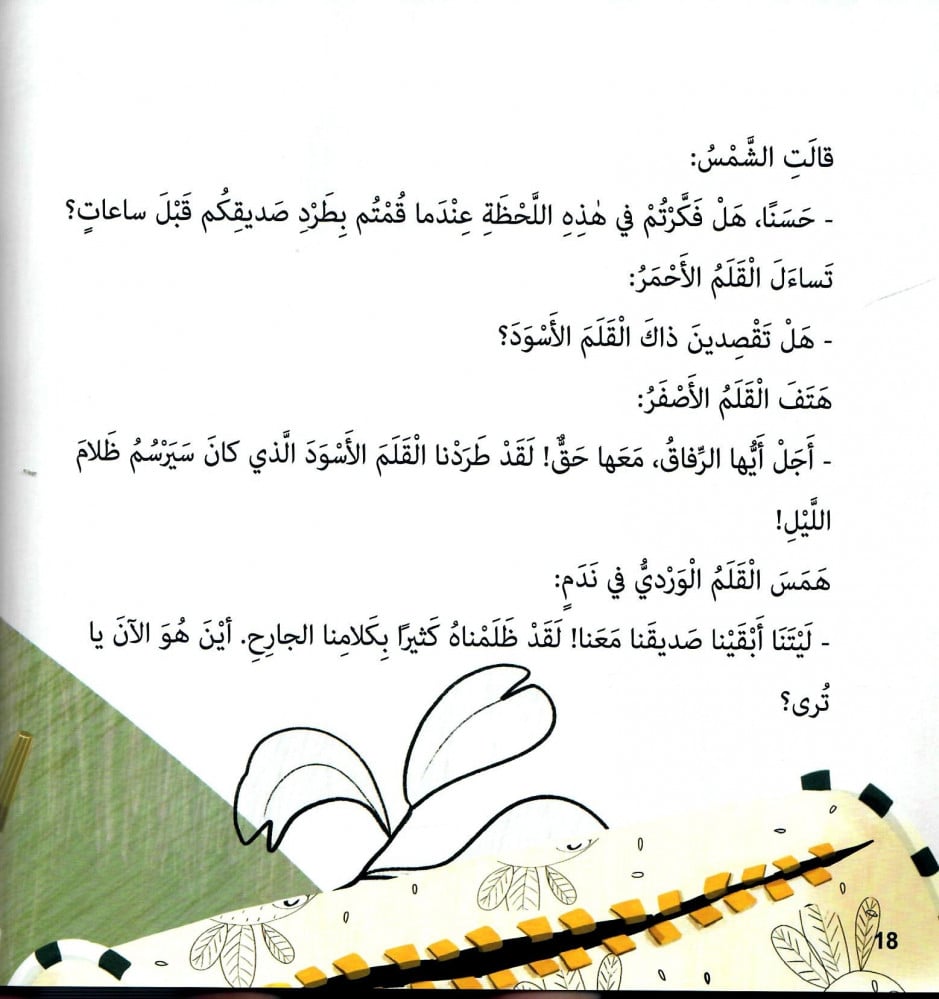 قالَتِ الشَّمْسُ:
- حَسَنًا، هَلْ فَكَّرْتُمْ في هٰذِهِ اللَّحْظَةِ عِنْدَما قُمْتُم بِطَرْدِ صَديقِكُم قَبْلَ ساعاتٍ؟
تَساءَلَ الْقَلَمُ الأَحْمَرُ:
- هَلْ تَقْصِدينَ ذاكَ الْقَلَمَ الأَسْوَدَ؟
هَتَفَ الْقَلَمُ الأَصْفَرُ:
- أَجَلْ أَيُّها الرِّفاقُ، مَعَها حَقٌّ! لَقَدْ طَرَدْنا الْقَلَمَ الأَسْوَدَ الَّذي كانَ سَيَرْسُمُ ظَلامَ
اللَّيْلِ!
هَمَسَ الْقَلَمُ الْوَرْديُّ في نَدَمٍ:
- لَيْتَنَا أَبْقَيْنا صَديقَنا مَعَنا! لَقَدْ ظَلَمْناهُ كَثيرًا بِكَلامِنا الجارِحِ. أيْنَ هُوَ الآنَ يا
تُرى؟
18